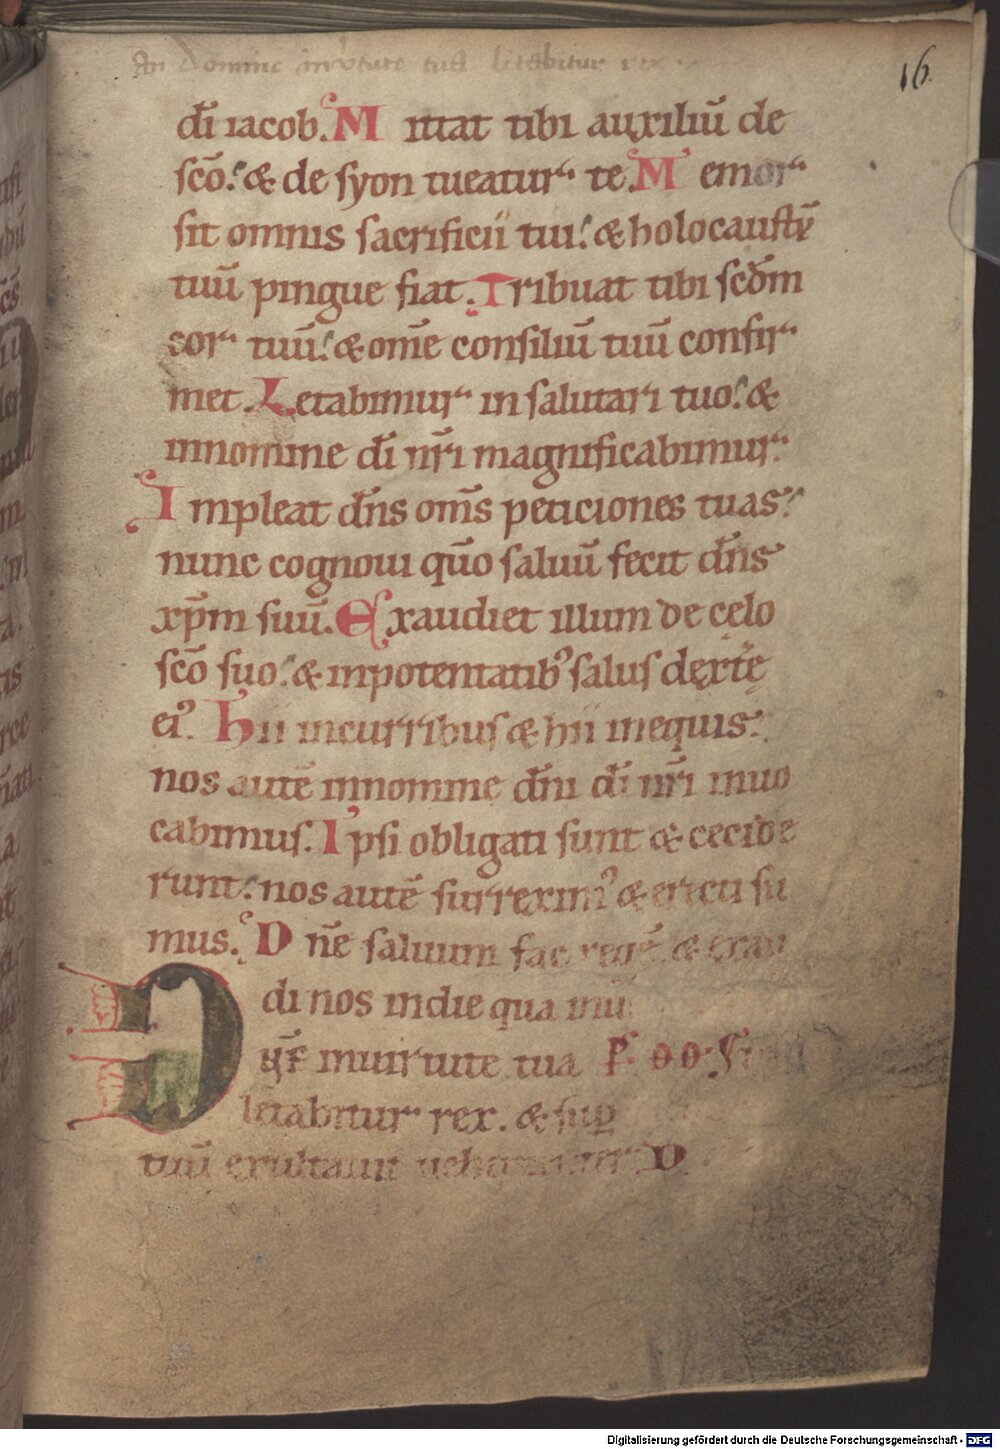 An Domine in v̓tute tua letabitur rex
16.
dī iacob. Mittat tibi auxiliū de
scō. & de syon tueatur te. Memor
sit omnis sacrificii tui. & holocaustū
tuū pingue fiat. Tribuat tibi scdm̄
cor tuū. & om̄e consiliū tuū confir
met. Letabimur in salutari tuo. & 
innomine dī nr̄i magnificabimur.
Impleat dn̄s om̄s peticiones tuas.
nunc cognoui qūo saluū fecit dn̄s
xp̄m suū. Exaudiet illum de celo
scō suo. & inpotentatib᾽ salus dextrē
ei᾽. Hii incurribus & hii inequis.
nos autē innomine dn̄i dī nr̄i inuo
cabimus. Ipsi obligati sunt & cecide
runt. nos autē surrexim᾽ & erecti su
mus. Dn̄e saluum fac regē & exau
di nos indie qua inu
D inuirtute tua
letabitur rex. & sup̱
tuū exultauit uehementer D
Digitalisierung gefördert durch die Deutsche Forschungsgemeinschaft - DFG